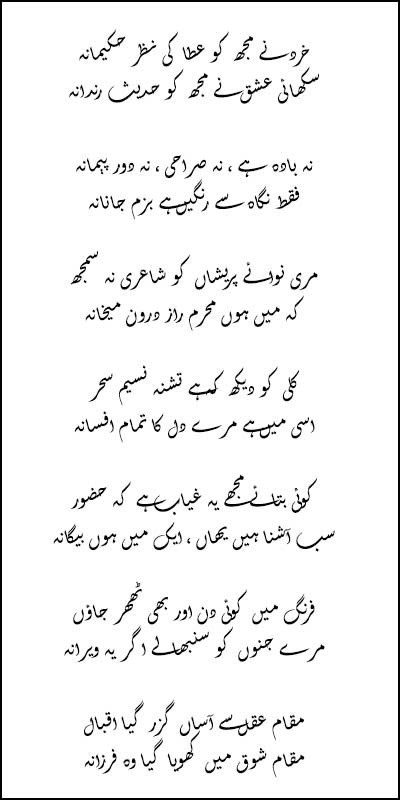 خرد نے مجھ کو عطا کی نظر حکیمانہ
سکھائی عشق نے مجھ کو حدیث رندانہ
نہ بادہ ہے ، نہ صراحی ، نہ دور پیمانہ
فقط نگاہ سے رنگیں ہے بزم جانانہ
مری نوائے پریشاں کو شاعری نہ سمجھ
کہ میں ہوں محرم راز درون میخانہ
کلی کو دیکھ کہ ہے تشنہ نسیم سحر
اسی میں ہے مرے دل کا تمام افسانہ
کوئی بتائے مجھے یہ غیاب ہے کہ حضور
سب آشنا ہیں یہاں ، ایک میں ہوں بیگانہ
فرنگ میں کوئی دن اور بھی ٹھہر جاؤں
مرے جنوں کو سنبھالے اگر یہ ویرانہ
مقام عقل سے آساں گزر گیا اقبال
مقام شوق میں کھویا گیا وہ فرزانہ